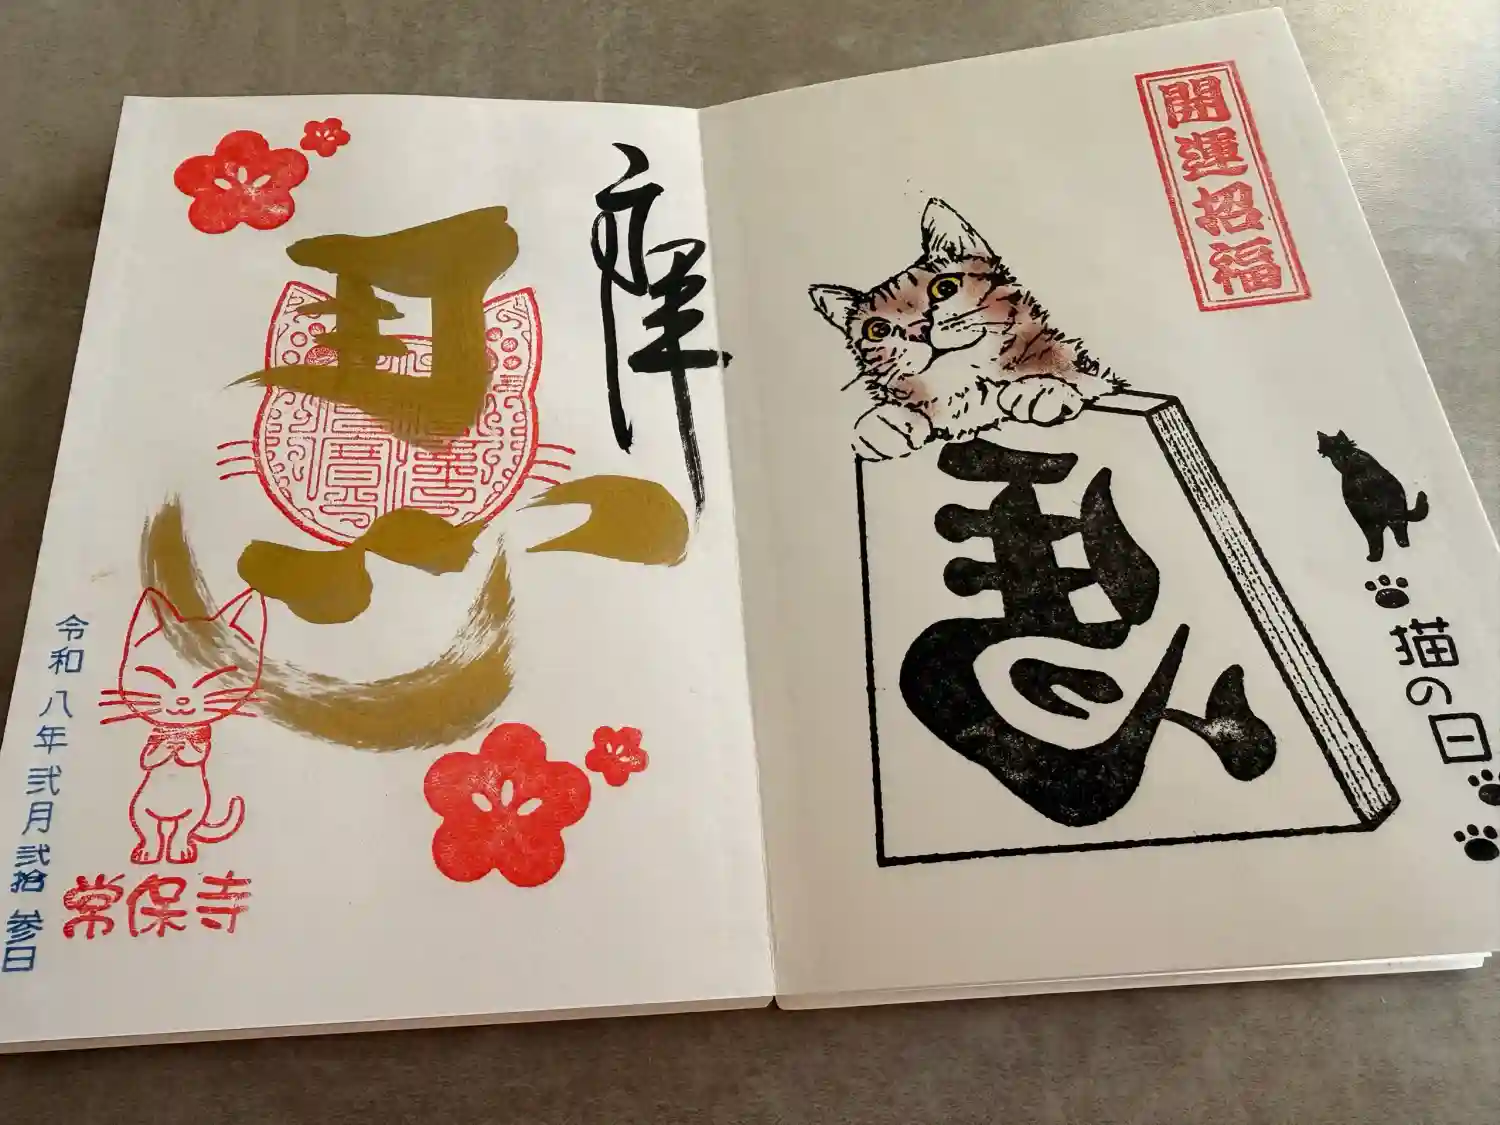 開運招福
馬
猫の日
令和八年弐月弐拾参日
常保寺